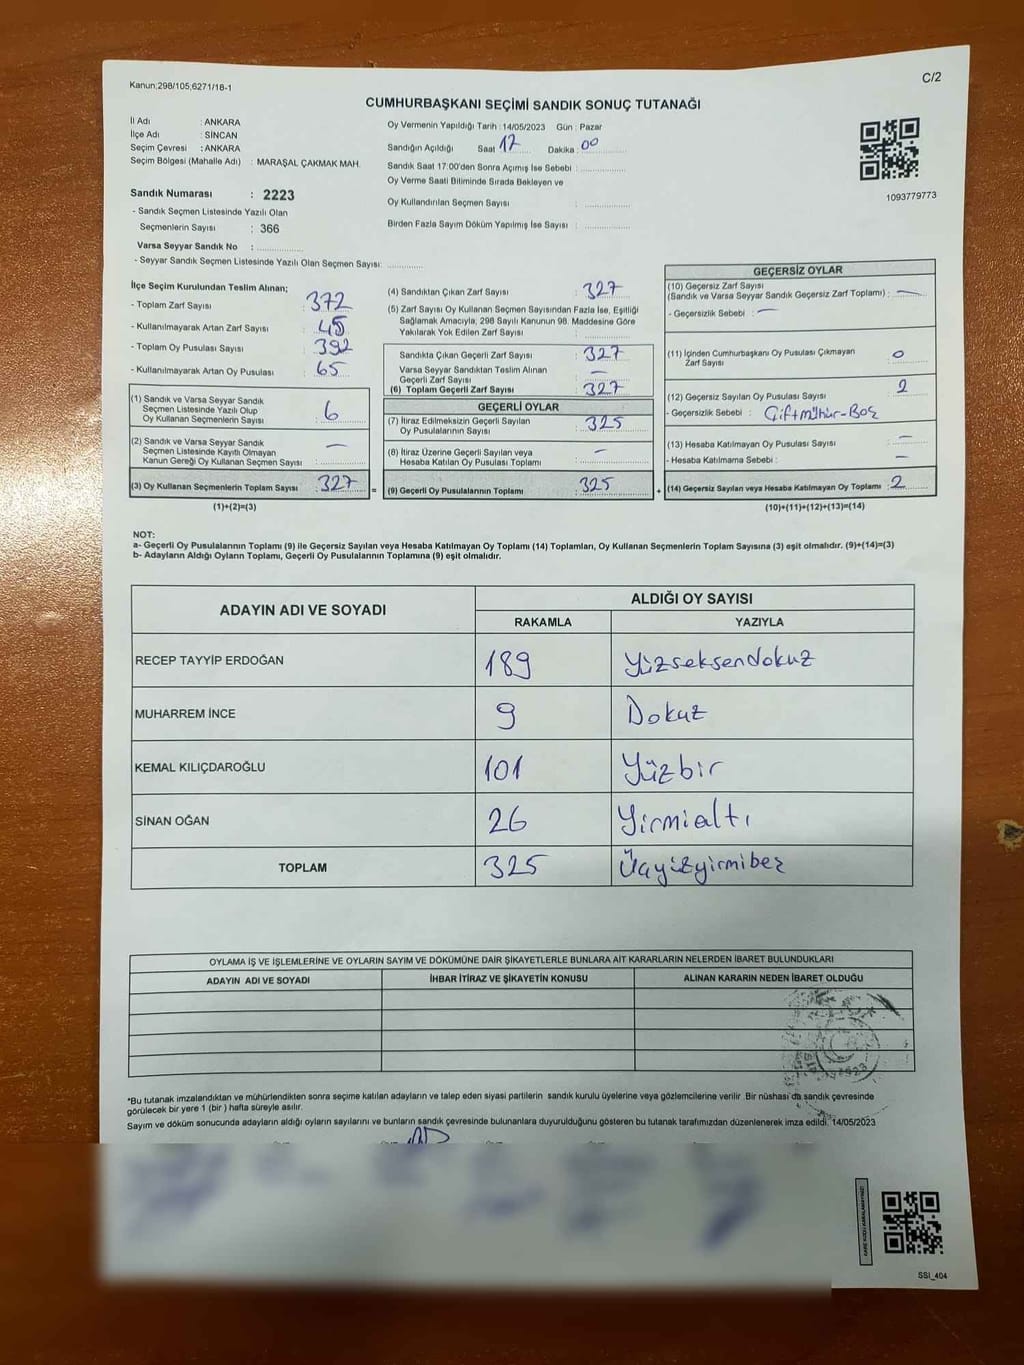 Kanun;298/105,6271/18-1
C/2
CUMHURBAŞKANI SEÇİMİ SANDIK SONUÇ TUTANAĞI
İl Adı : ANKARA
İlçe Adı : SİNCAN
Seçim Çevresi : ANKARA
Seçim Bölgesi (Mahalle Adı) : MARAŞAL ÇAKMAK MAH.
Sandık Numarası : 2223
- Sandık Seçmen Listesinde Yazılı Olan
Seçmenlerin Sayısı : 366
Varsa Seyyar Sandık No :
- Seyyar Sandık Seçmen Listesinde Yazılı Olan Seçmen Sayısı:
Oy Vermenin Yapıldığı Tarih : 14/05/2023 Gün : Pazar
Sandığın Açıldığı Saat 17 Dakika : 00
Sandık Saat 17:00'den Sonra Açımış İse Sebebi :
Oy Verme Saati Bitiminde Sırada Bekleyen ve
Oy Kullandırılan Seçmen Sayısı :
Birden Fazla Sayım Döküm Yapılmış İse Sayısı :
1093779773
İlçe Seçim Kurulundan Teslim Alınan;
- Toplam Zarf Sayısı : 372
- Kullanılmayarak Artan Zarf Sayısı : 45
- Toplam Oy Pusulası Sayısı : 392
- Kullanılmayarak Artan Oy Pusulası : 65
(1) Sandık ve Varsa Seyyar Sandık
Seçmen Listesinde Yazılı Olup
Oy Kullanan Seçmenlerin Sayısı : 6
(2) Sandık ve Varsa Seyyar Sandık
Seçmen Listesinde Kayıtlı Olmayan
Kanun Gereği Oy Kullanan Seçmen Sayısı : —
(3) Oy Kullanan Seçmenlerin Toplam Sayısı : 327 =
(1)+(2)=(3)
(4) Sandıktan Çıkan Zarf Sayısı : 327
(5) Zarf Sayısı Oy Kullanan Seçmen Sayısından Fazla İse, Eşitliği
Sağlamak Amacıyla, 298 Sayılı Kanunun 98. Maddesine Göre
Yakılarak Yok Edilen Zarf Sayısı :
Sandıkta Çıkan Geçerli Zarf Sayısı : 327
Varsa Seyyar Sandıktan Teslim Alınan
Geçerli Zarf Sayısı : —
(6) Toplam Geçerli Zarf Sayısı : 327
GEÇERLİ OYLAR
(7) İtiraz Edilmeksizin Geçerli Sayılan
Oy Pusulalarının Sayısı : 325
(8) İtiraz Üzerine Geçerli Sayılan veya
Hesaba Katılan Oy Pusulası Toplamı : —
(9) Geçerli Oy Pusulalarının Toplamı : 325 +
GEÇERSİZ OYLAR
(10) Geçersiz Zarf Sayısı
(Sandık ve Varsa Seyyar Sandık Geçersiz Zarf Toplamı) : —
- Geçersizlik Sebebi : —
(11) İçinden Cumhurbaşkanı Oy Pusulası Çıkmayan
Zarf Sayısı : 0
(12) Geçersiz Sayılan Oy Pusulası Sayısı : 2
- Geçersizlik Sebebi : Çiftmühür-Boş
(13) Hesaba Katılmayan Oy Pusulası Sayısı : —
- Hesaba Katılmama Sebebi : —
(14) Geçersiz Sayılan veya Hesaba Katılmayan Oy Toplamı : 2
(10)+(11)+(12)+(13)=(14)
NOT:
a- Geçerli Oy Pusulalarının Toplamı (9) ile Geçersiz Sayılan veya Hesaba Katılmayan Oy Toplamı (14) Toplamları, Oy Kullanan Seçmenlerin Toplam Sayısına (3) eşit olmalıdır. (9)+(14)=(3)
b- Adayların Aldığı Oyların Toplamı, Geçerli Oy Pusulalarının Toplamına (9) eşit olmalıdır.
ADAYIN ADI VE SOYADI
ALDIĞI OY SAYISI
RAKAMLA YAZIYLA
RECEP TAYYİP ERDOĞAN 189 Yüzseksendokuz
MUHARREM İNCE 9 Dokuz
KEMAL KILIÇDAROĞLU 101 Yüzbir
SİNAN OĞAN 26 Yirmialtı
TOPLAM 325 Üçyüzyirmibeş
OYLAMA İŞ VE İŞLEMLERİNE VE OYLARIN SAYIM VE DÖKÜMÜNE DAİR ŞİKAYETLERLE BUNLARA AİT KARARLARIN NELERDEN İBARET BULUNDUKLARI
ADAYIN ADI VE SOYADI İHBAR İTİRAZ VE ŞİKAYETİN KONUSU ALINAN KARARIN NEDEN İBARET OLDUĞU
*Bu tutanak imzalandıktan ve mühürlendikten sonra seçime katılan adayların ve talep eden siyasi partilerin sandık kurulu üyelerine veya gözlemcilerine verilir .Bir nüshası da sandık çevresinde
görülecek bir yere 1 (bir ) hafta süreyle asılır.
Sayım ve döküm sonucunda adayların aldığı oyların sayılarını ve bunların sandık çevresinde bulunanlara duyurulduğunu gösteren bu tutanak tarafımızdan düzenlenerek imza edildi. 14/05/2023
SSI_404